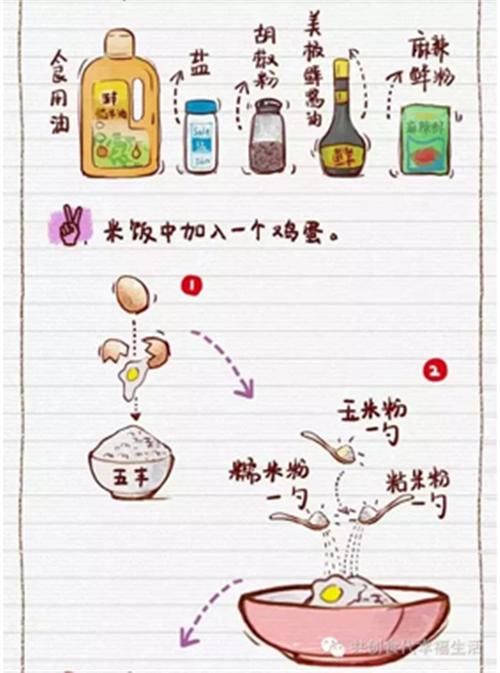 食用油
盐
胡椒粉
美极鲜酱油
麻辣鲜粉
鲜
Sale
盐
米饭中加入一个鸡蛋。
1
2
五丰
玉米粉
一勺
糯米粉
一勺
粘米粉
一勺
共创食代幸福生活